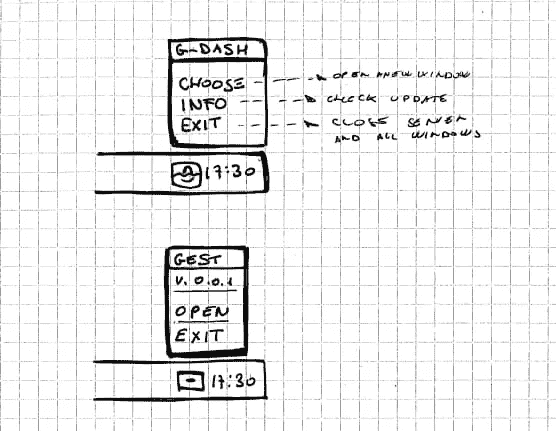 G-DASH
CHOOSE
OPEN A NEW WINDOW
INFO
CHECK UPDATE
EXIT
CLOSE SERVER
AND ALL WINDOWS
17:30
GEST
V. 0.0.1
OPEN
EXIT
17:30